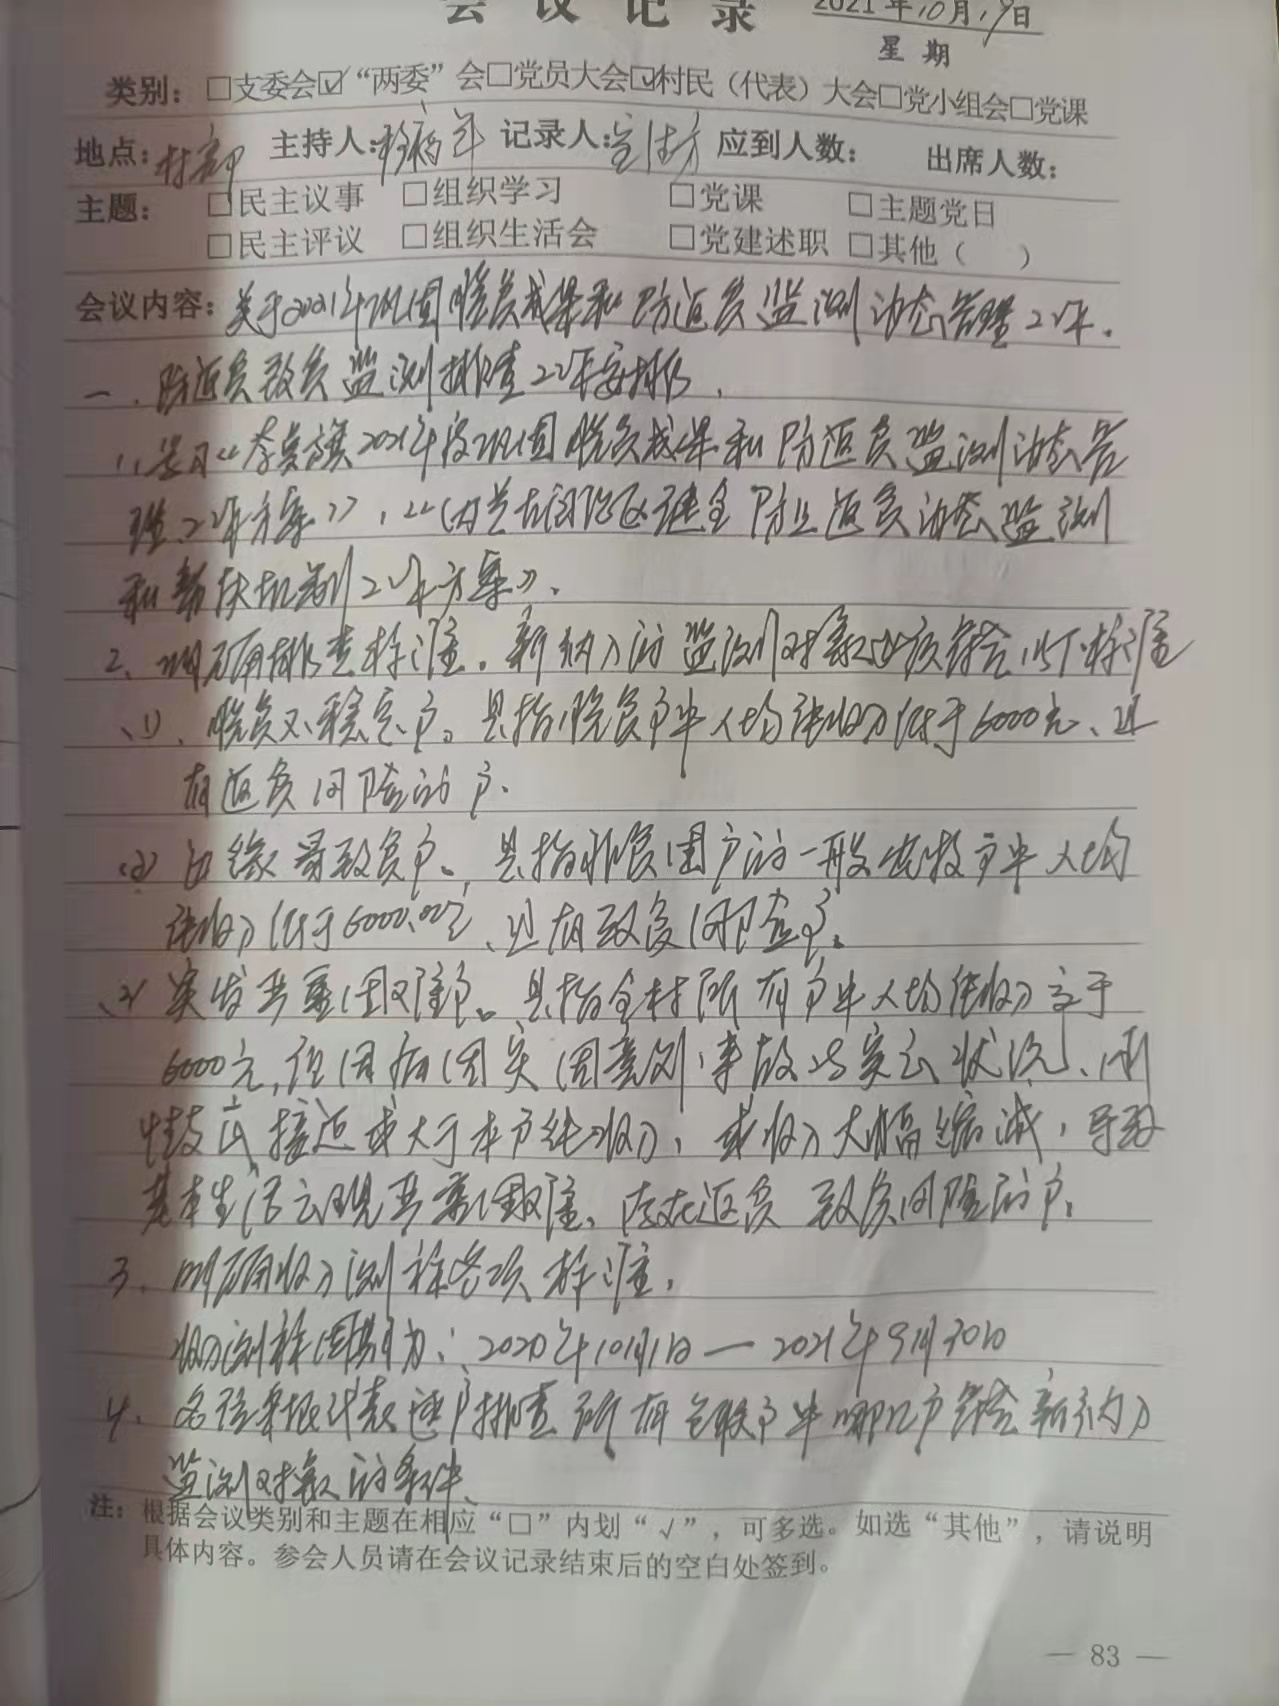 会议记录 2021年10月19日
星期
类别：□支委会☑“两委”会□党员大会☑村民（代表）大会□党小组会□党课
地点：村部 主持人： 记录人： 应到人数： 出席人数：
主题： □民主议事 □组织学习 □党课 □主题党日
□民主评议 □组织生活会 □党建述职 □其他（ ）
会议内容：关于2021年巩固脱贫成果和防返贫监测动态管理工作.
一、防返贫致贫监测排查工作安排.
1、学习《奈曼旗2021年度巩固脱贫成果和防返贫监测动态管
理工作方案》，《内蒙古自治区健全防止返贫动态监测
和帮扶机制工作方案》.
2、明确排查标准。新纳入的监测对象必须符合以下标准
(1)、脱贫不稳定户。是指脱贫户中人均纯收入低于6000元、且
有返贫风险的户.
(2) 边缘易致贫户。是指非贫困户的一般农牧户中人均
纯收入低于6000.00元、且有致贫风险户。
(3) 突发严重困难户。是指全村所有户中人均纯收入高于
6000元,但因病因灾因意外事故等突出状况、刚
性支出接近或大于本户纯收入，或收入大幅缩减，导致
基本生活出现严重困难、存在返贫致贫风险的户。
3、明确收入测算各项标准.
收入测算周期为：2020年10月1日—2021年9月30日
4、各位村民代表逐户排查所有包联户中哪几户符合新纳入
监测对象的条件.
注：根据会议类别和主题在相应“□”内划“√”，可多选。如选“其他”，请说明
具体内容。参会人员请在会议记录结束后的空白处签到。
— 83 —